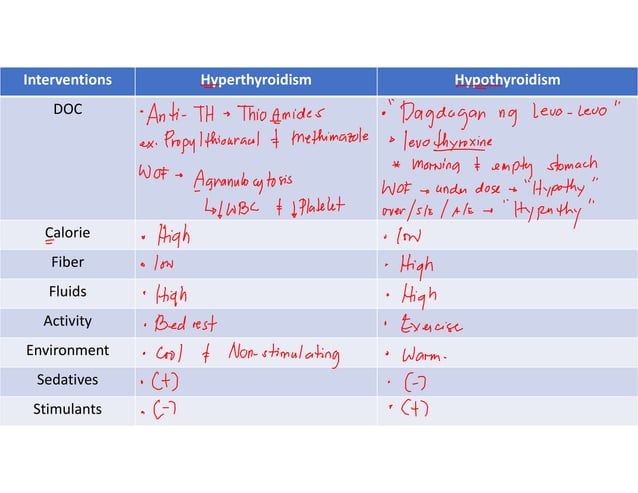 Interventions Hyperthyroidism Hypothyroidism
DOC
• Anti-TH → ThioAmides
ex. Propylthiouracil & Methimazole
WOF → Agranulocytosis
↳ ↓WBC & ↓Platelet
• "Dagdagan ng levo-levo"
> levothyroxine
* morning & empty stomach
WOF → under dose → "Hypothy"
over/S/E / A/E → "Hyperthy"
Calorie • High • low
Fiber • low • High
Fluids • High • High
Activity • Bed rest • Exercise
Environment • Cool & Non-stimulating • Warm.
Sedatives • (+) • (-)
Stimulants • (-) • (+)